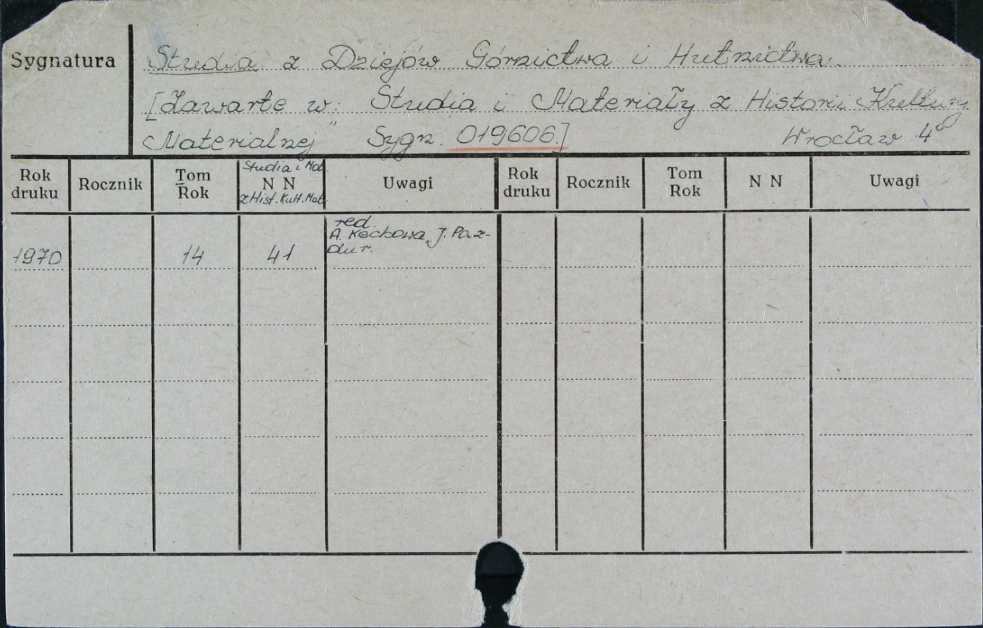 Sygnatura
Studia z Dziejów Górnictwa i Hutnictwa.
[Zawarte w: Studia i Materiały z Historii Kultury
Materialnej" Sygn. 019606.] Wrocław 4°
Rok druku Rocznik Tom Rok Studia i Mat. N N z Hist. Kult. Mat. Uwagi Rok druku Rocznik Tom Rok N N Uwagi
1970 14 41 red. A. Kechowa, J. Paz-
dur.